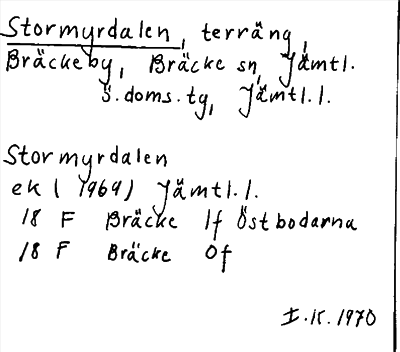 Stormyrdalen, terräng,
Bräckeby, Bräcke sn, Jämtl.
S. doms. tg, Jämtl. l.
Stormyrdalen
ek (1969) Jämtl. l.
18 F Bräcke lf Östbodarna
18 F Bräcke Of
I.K. 1970